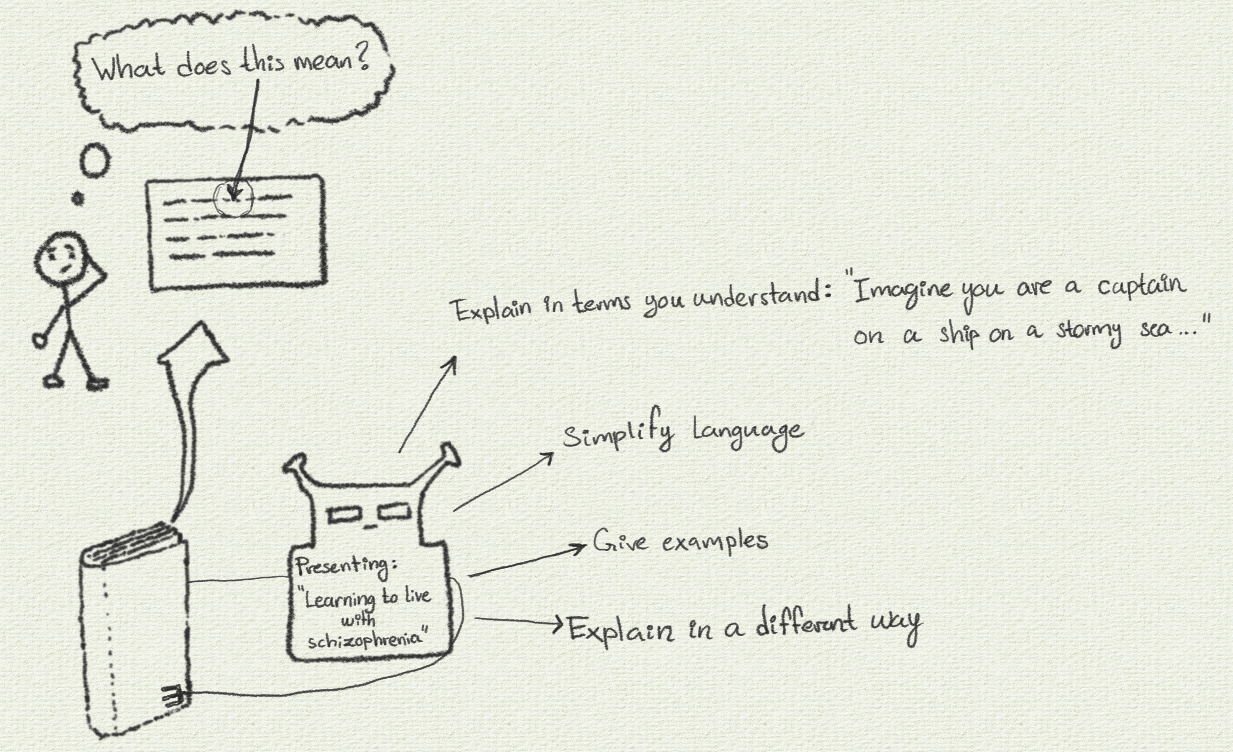 What does this mean?
Explain in terms you understand: "Imagine you are a captain
on a ship on a stormy sea..."
Simplify Language
Give examples
Explain in a different way
Presenting:
"Learning to live
with
schizophrenia"